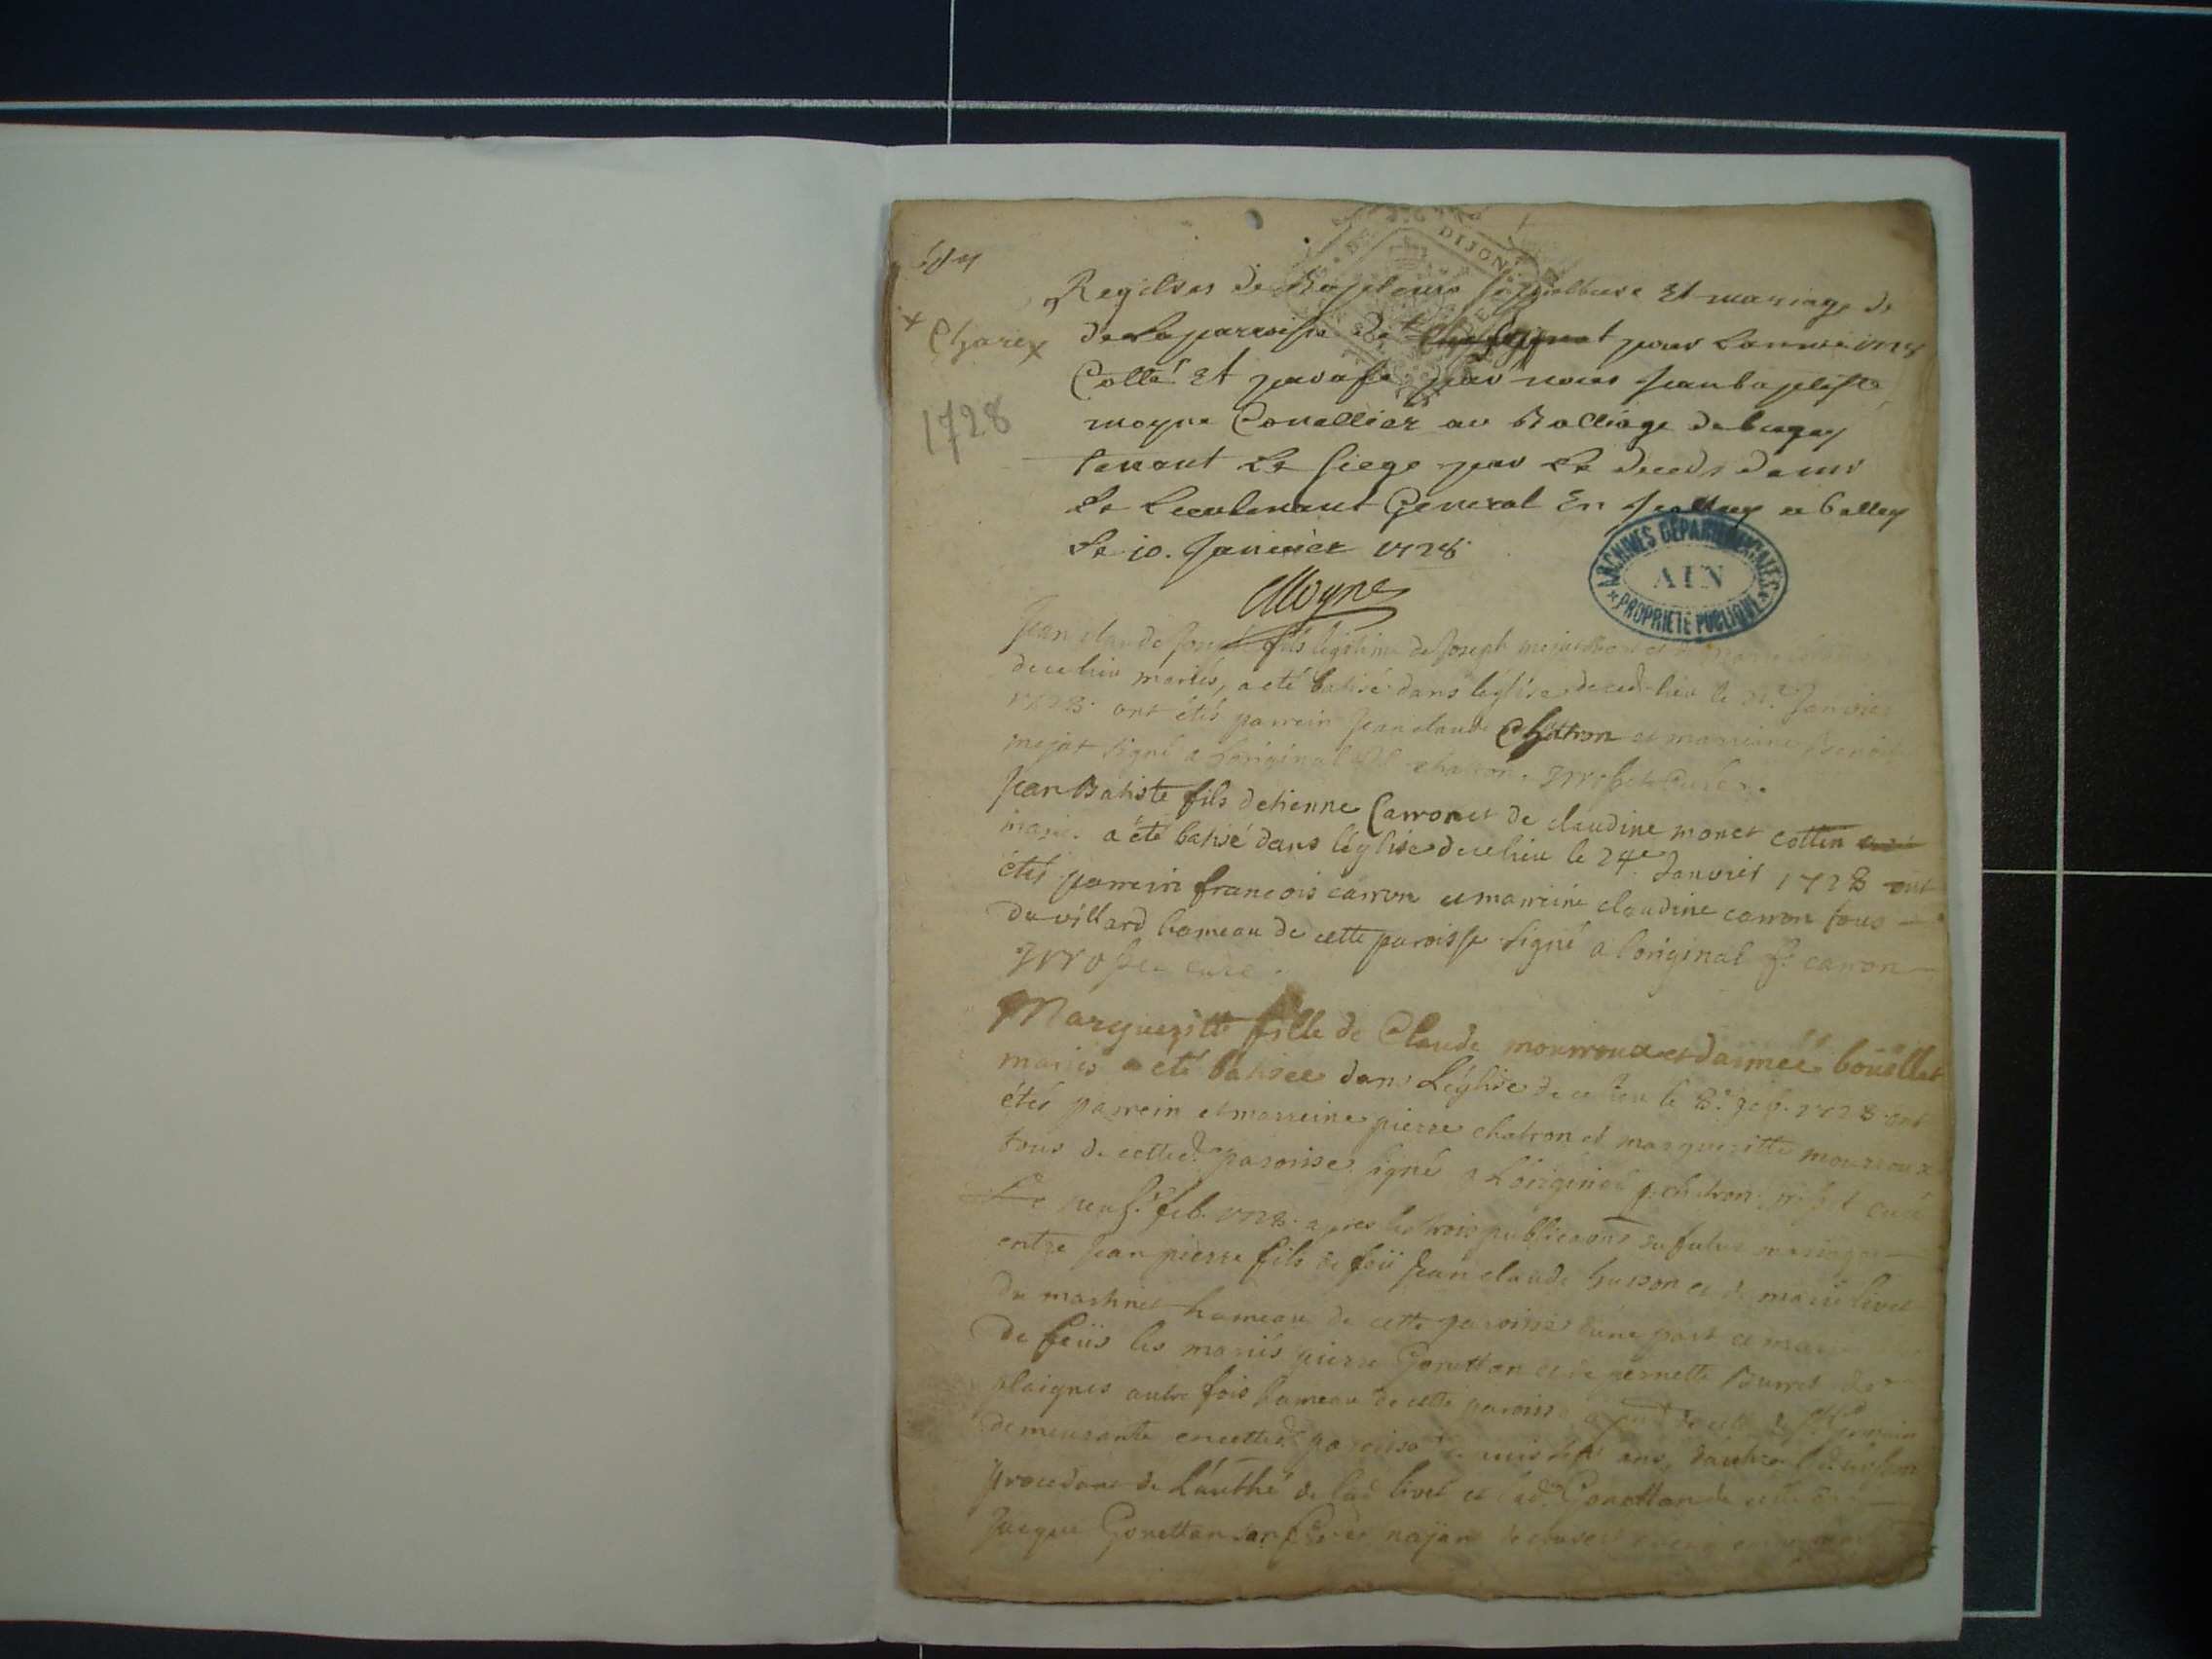 DIJON
Registres de Baptesme sepulture Et mariage de
de La parroisse de pour Lannee 1728
+ Charix
Cotté Et paraffé par nous Jean baptiste
1728
moyne Conellier au Balliage de bugey
tenant Le siege par Le deceds de mr
Le Lieutenant General En a belley
Le 10. Janvier 1728
Moyne
ARCHIVES DÉPARTEMENTALES
AIN
PROPRIÉTÉ PUBLIQUE
Jean claude Joseph fils légitime de Joseph mejat
de ce lieu mariés, a eté batisé dans léglise de ced. lieu le Janvier
1728. ont étés parrein Jean claude Chatron et marreine
mejat signé a loriginal chatron curé.
Jean Batiste fils detienne Carron et de claudine monet cottin
mariés a été batisé dans léglise de ce lieu le 24e Janvier 1728 ont
étés parrein francois carron et marreine claudine carron tous
du villard hameau de cette paroisse signé a loriginal f. carron
curé.
Margueritte fille de Claude mourroux et daimée bouillet
mariés a eté batisée dans Léglise de ce lieu le 8e feb. 1728 ont
étés parrein et marreine pierre chatron et margueritte mourroux
tous de cette d. paroisse signé a Loriginal p. chatron curé
Le neuf feb. 1728. apres les trois publicaons du futur mariage
entre Jean pierre fils de feü Jean claude husson et de marie livet
du martinet hameau de cette paroisse dune part et
de feüs les mariés pierre Gonettan et de pernette
plaignes autre fois hameau de cette paroisse a de St Germain
demeurante en cette d. paroisse depuis sept ans, dautre
procedant de Lauthé de lad livet et lad. Gonettan de celle de
Jacque Gonettan son frere